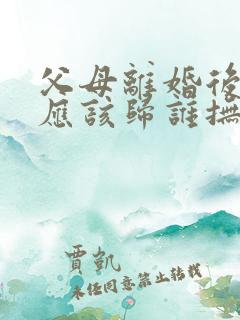 父母離婚後
應該歸誰撫
賈凱
未經同意禁止转载